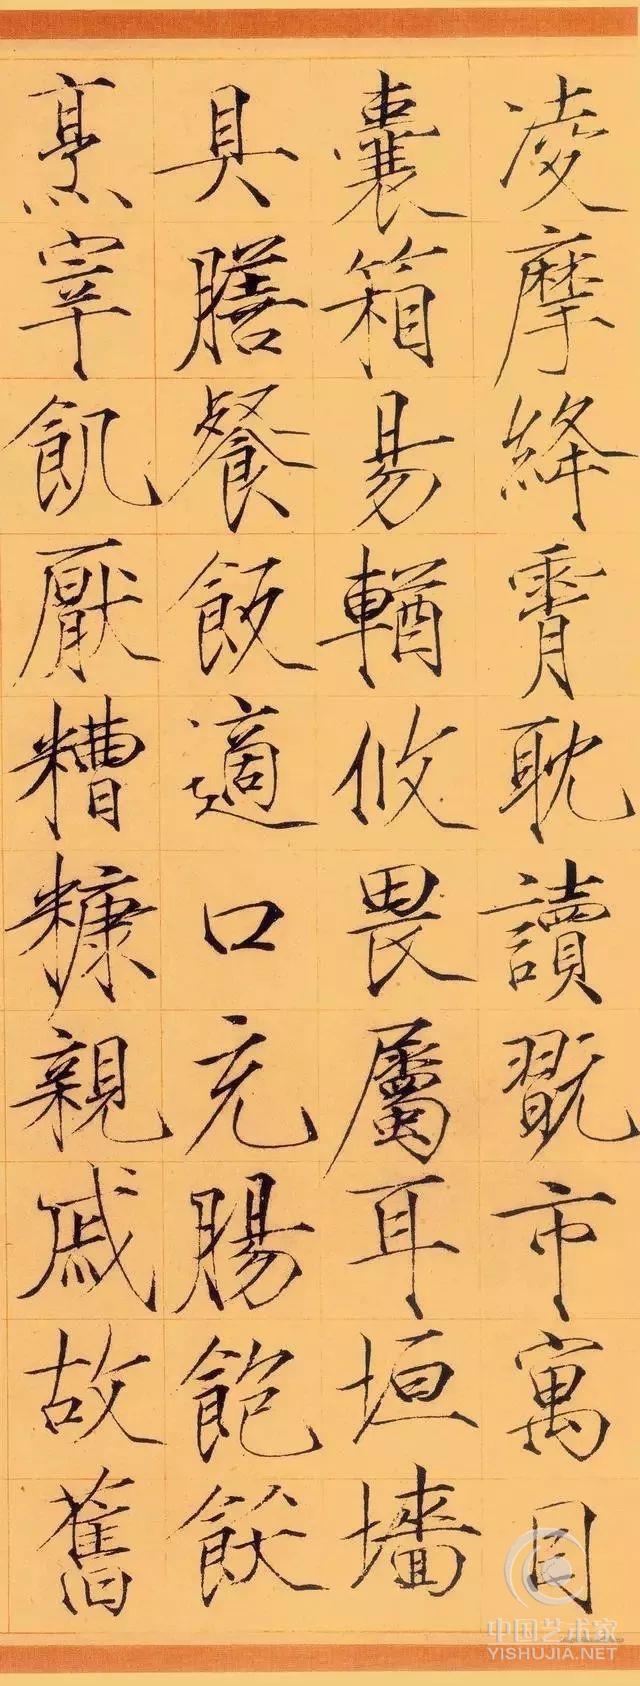 凌摩絳霄耽讀翫市寓目
囊箱易輶攸畏屬耳垣墻
具膳餐飯適口充腸飽飫
烹宰飢厭糟糠親戚故舊
中国艺术家
YISHUJIA.NET